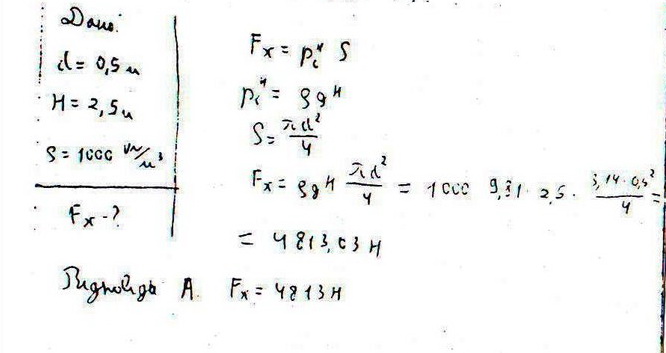 Дано:
d = 0,5 м
H = 2,5 м
ρ = 1000 кг/м³
Fx - ?
Fx = pᵢᴴ S
pᵢᴴ = ρgH
S = πd²/4
Fx = ρgH πd²/4 = 1000 9,81 · 2,5 · 3,14 · 0,5²/4 =
= 4813,03 Н
Відповідь А. Fx = 4813 Н